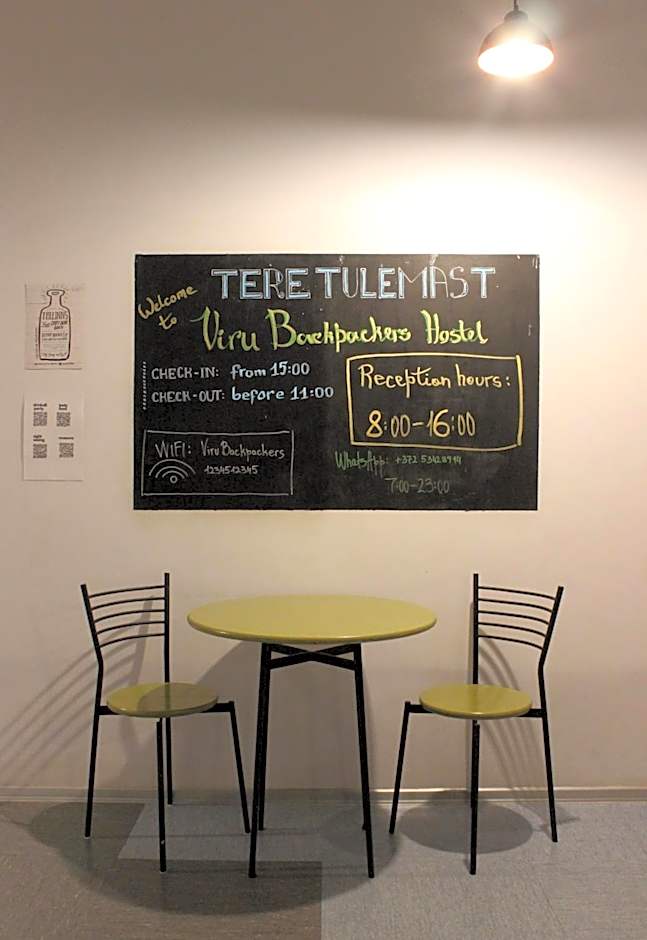 TERE TULEMAST
Welcome
to
Viru Backpackers Hostel
CHECK-IN: from 15:00
CHECK-OUT: before 11:00
Reception hours:
8:00-16:00
WIFI: ViruBackpackers
1234512345
WhatsApp: +372
7:00-23:00